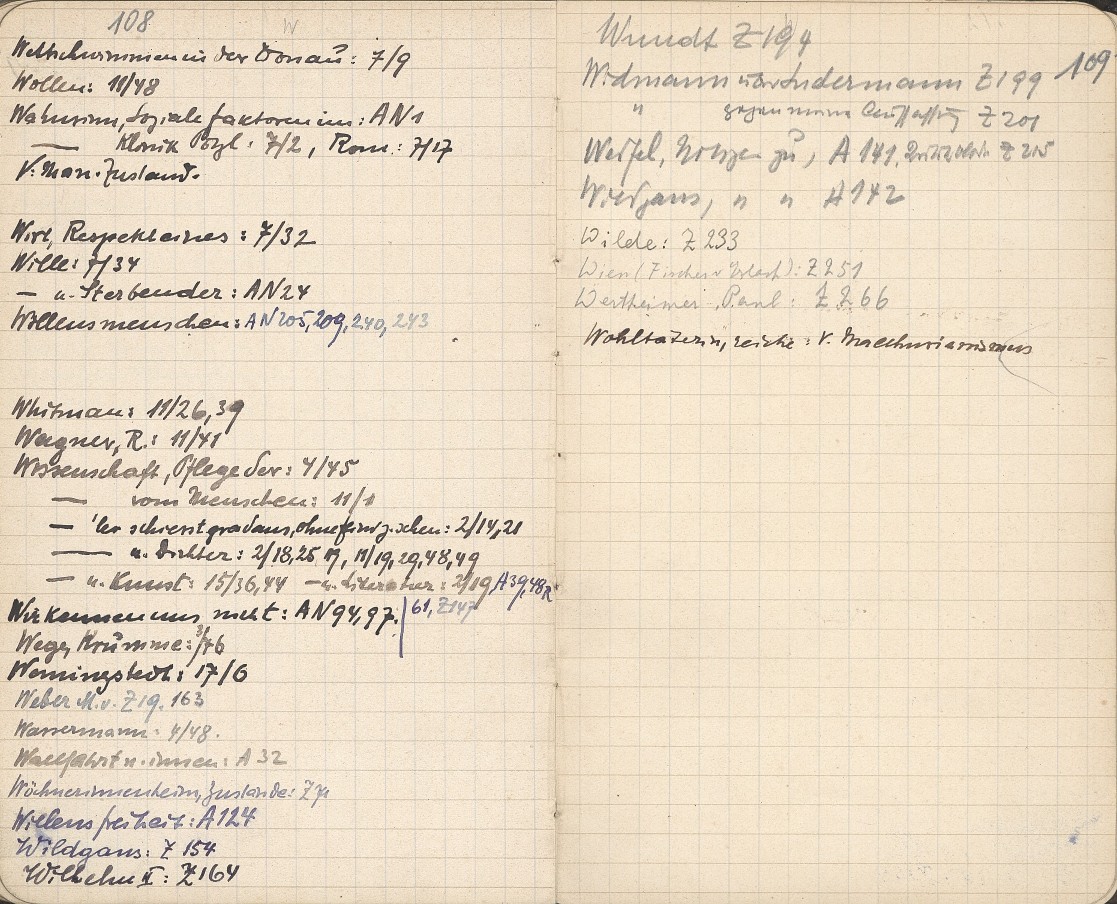 108
W
Wettschwimmen in der Donau: 7/9
Wollen: 11/48
Wahnsinn, Soziale Faktoren im: AN1
— Klinik Pözl: 7/2, Rom: 7/17
V. Man. Zustand.
Wirt, Respekt eines: 7/32
Wille: 7/34
— u. Sterbender: AN24
Willensmenschen: AN205, 209, 240, 243
Whitman: 11/26, 39
Wagner, R.: 11/41
Wissenschaft, Pflege der: 4/45
— vom Menschen: 11/1
— 'Er schiesst gradaus, ohne : 2/14, 21
— u. Dichter: 2/18, 25 , 11/19, 29, 48, 49
— u. Kunst: 15/36, 44 — u. Literatur: 2/19, A39, 48R
Wir kennen uns nicht: AN94, 97. 61, Z147
Wege, Krumme: 3/46
Wenningstedt: 17/6
Weber M. v. Z19. 163
Wassermann: 4/48.
Wallfahrt n. innen: A 32
Wöchnerinnenheim, Zustände:
Willensfreiheit: A124
Wildgans: Z 154
Wilhelm II: Z164
109
Wundt Z194
Widmann über Sudermann Z199
" gegen meine Auffassung Z 201
Weifel, Notizen zu, A 141, Z 205
Wildgans, " " A142
Wilde: Z 233
Wien (Fischer v Erlach): Z251
Wertheimer, Paul: Z 266
Wohltäterin, reiche: V.